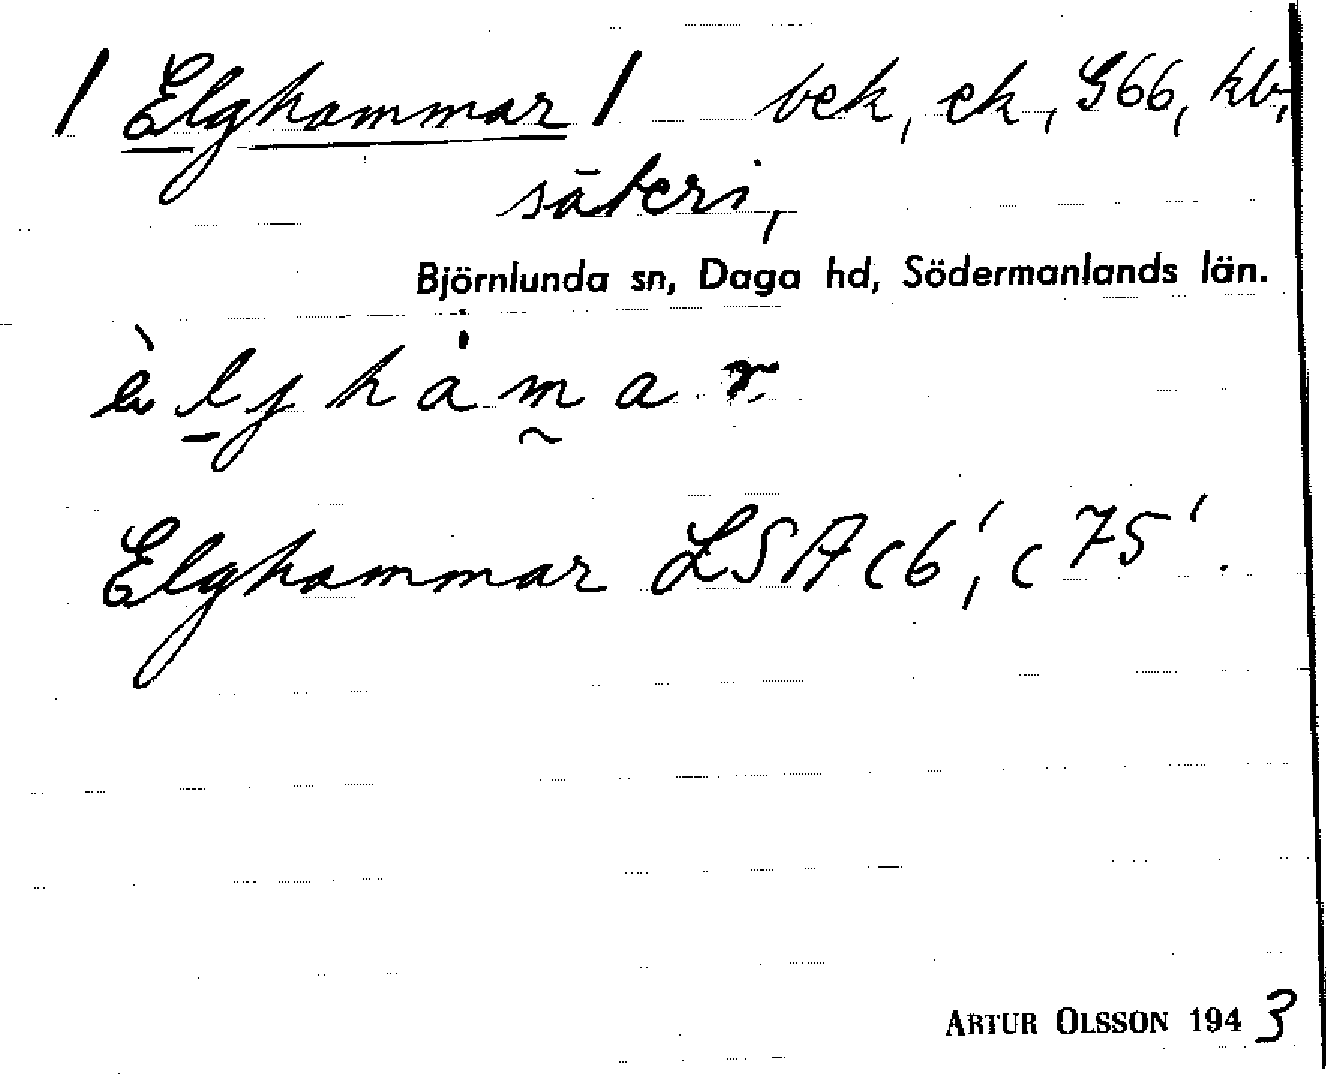 / Elghammar / bek, ek, G66, kb,
säteri,
Björnlunda sn, Daga hd, Södermanlands län.
Elghammar LSA c6', c75'.
ARTUR OLSSON 1943